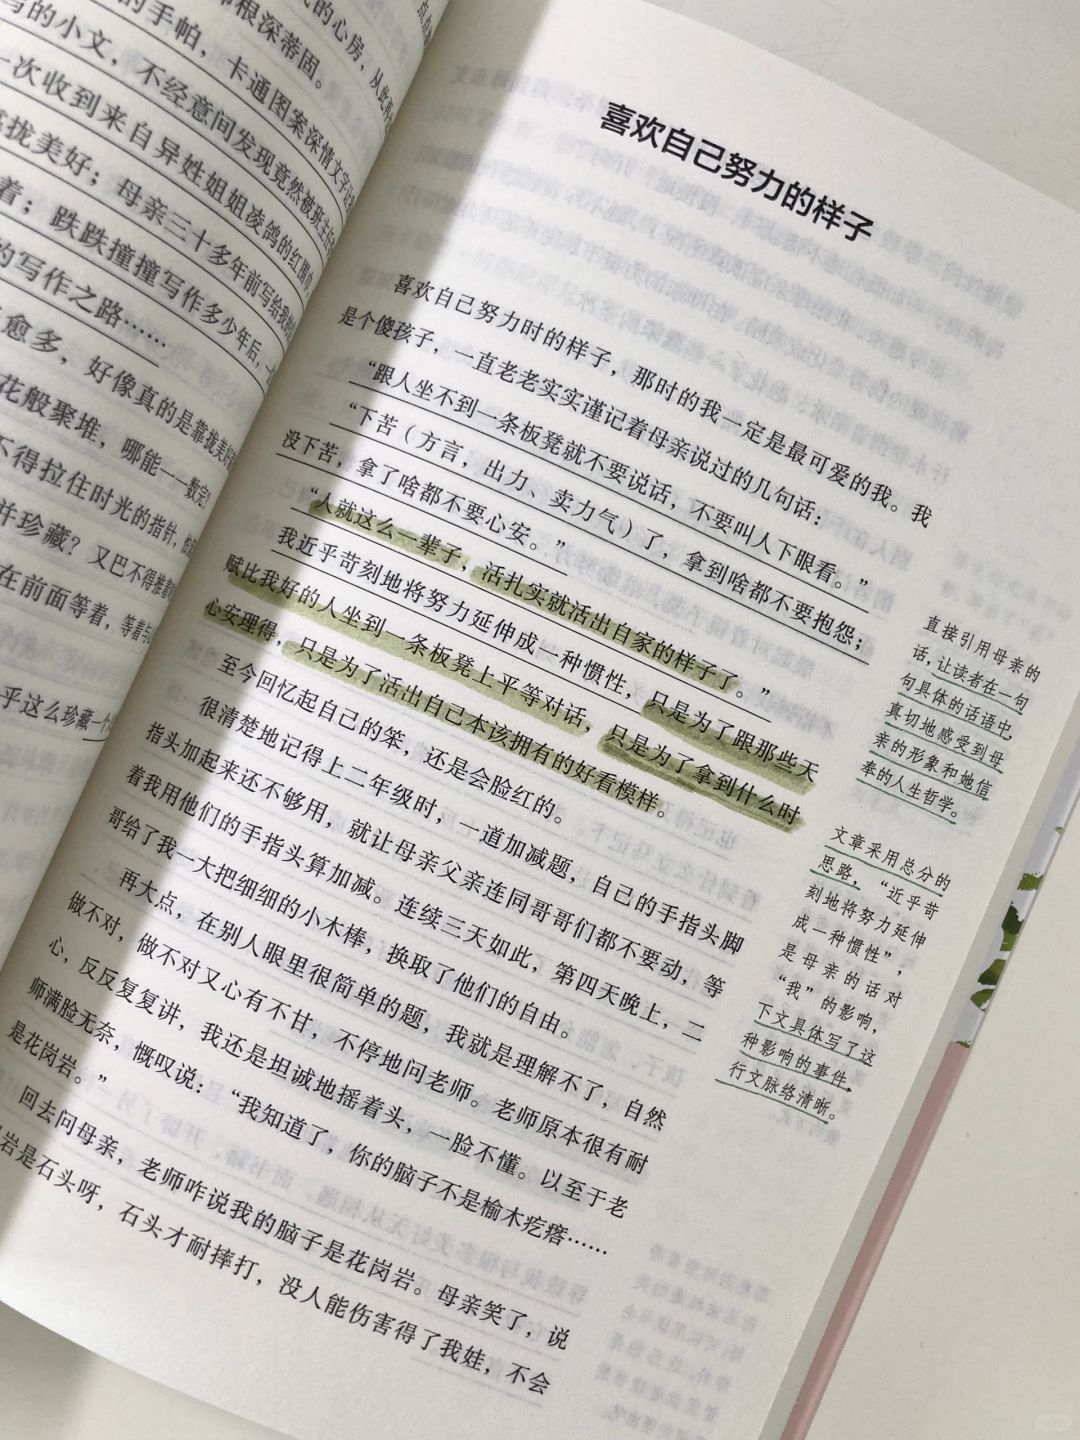 根深蒂固。
的心房，从此再
的手帕，卡通图案深情文字让
写的小文，不经意间发现竟然被班主任
一次收到来自异姓姐姐凌鸽的红围巾
扰美好；母亲三十多年前写给我
着；跌跌撞撞写作多少年后，一
的写作之路……
愈多，好像真的是靠拢美好
花般聚堆，哪能一一数完？
不得拉住时光的指针，
并珍藏？又巴不得推着
在前面等着，等着与
乎这么珍藏一个
喜欢自己努力的样子
喜欢自己努力时的样子，那时的我一定是最可爱的我。我
是个傻孩子，一直老老实实谨记着母亲说过的几句话：
“跟人坐不到一条板凳就不要说话，不要叫人下眼看。”
“下苦（方言，出力、卖力气）了，拿到啥都不要抱怨；
没下苦，拿了啥都不要心安。”
“人就这么一辈子，活扎实就活出自家的样子了。”
我近乎苛刻地将努力延伸成一种惯性，只是为了跟那些天
赋比我好的人坐到一条板凳上平等对话，只是为了拿到什么时
心安理得，只是为了活出自己本该拥有的好看模样。
至今回忆起自己的笨，还是会脸红的。
很清楚地记得上二年级时，一道加减题，自己的手指头脚
指头加起来还不够用，就让母亲父亲连同哥哥们都不要动，等
着我用他们的手指头算加减。连续三天如此，第四天晚上，二
哥给了我一大把细细的小木棒，换取了他们的自由。
再大点，在别人眼里很简单的题，我就是理解不了，自然
做不对，做不对又心有不甘，不停地问老师。老师原本很有耐
心，反反复复讲，我还是坦诚地摇着头，一脸不懂。以至于老
师满脸无奈，慨叹说：“我知道了，你的脑子不是榆木疙瘩……
是花岗岩。”
回去问母亲，老师咋说我的脑子是花岗岩。母亲笑了，说
岩是石头呀，石头才耐摔打，没人能伤害得了我娃，不会
直接引用母亲的
话，让读者在一句
句具体的话语中，
真切地感受到母
亲的形象和她信
奉的人生哲学。
文章采用总分的
思路，“近乎苛
刻地将努力延伸
成一种惯性”，
是母亲的话对
“我”的影响，
下文具体写了这
种影响的事件，
行文脉络清晰。